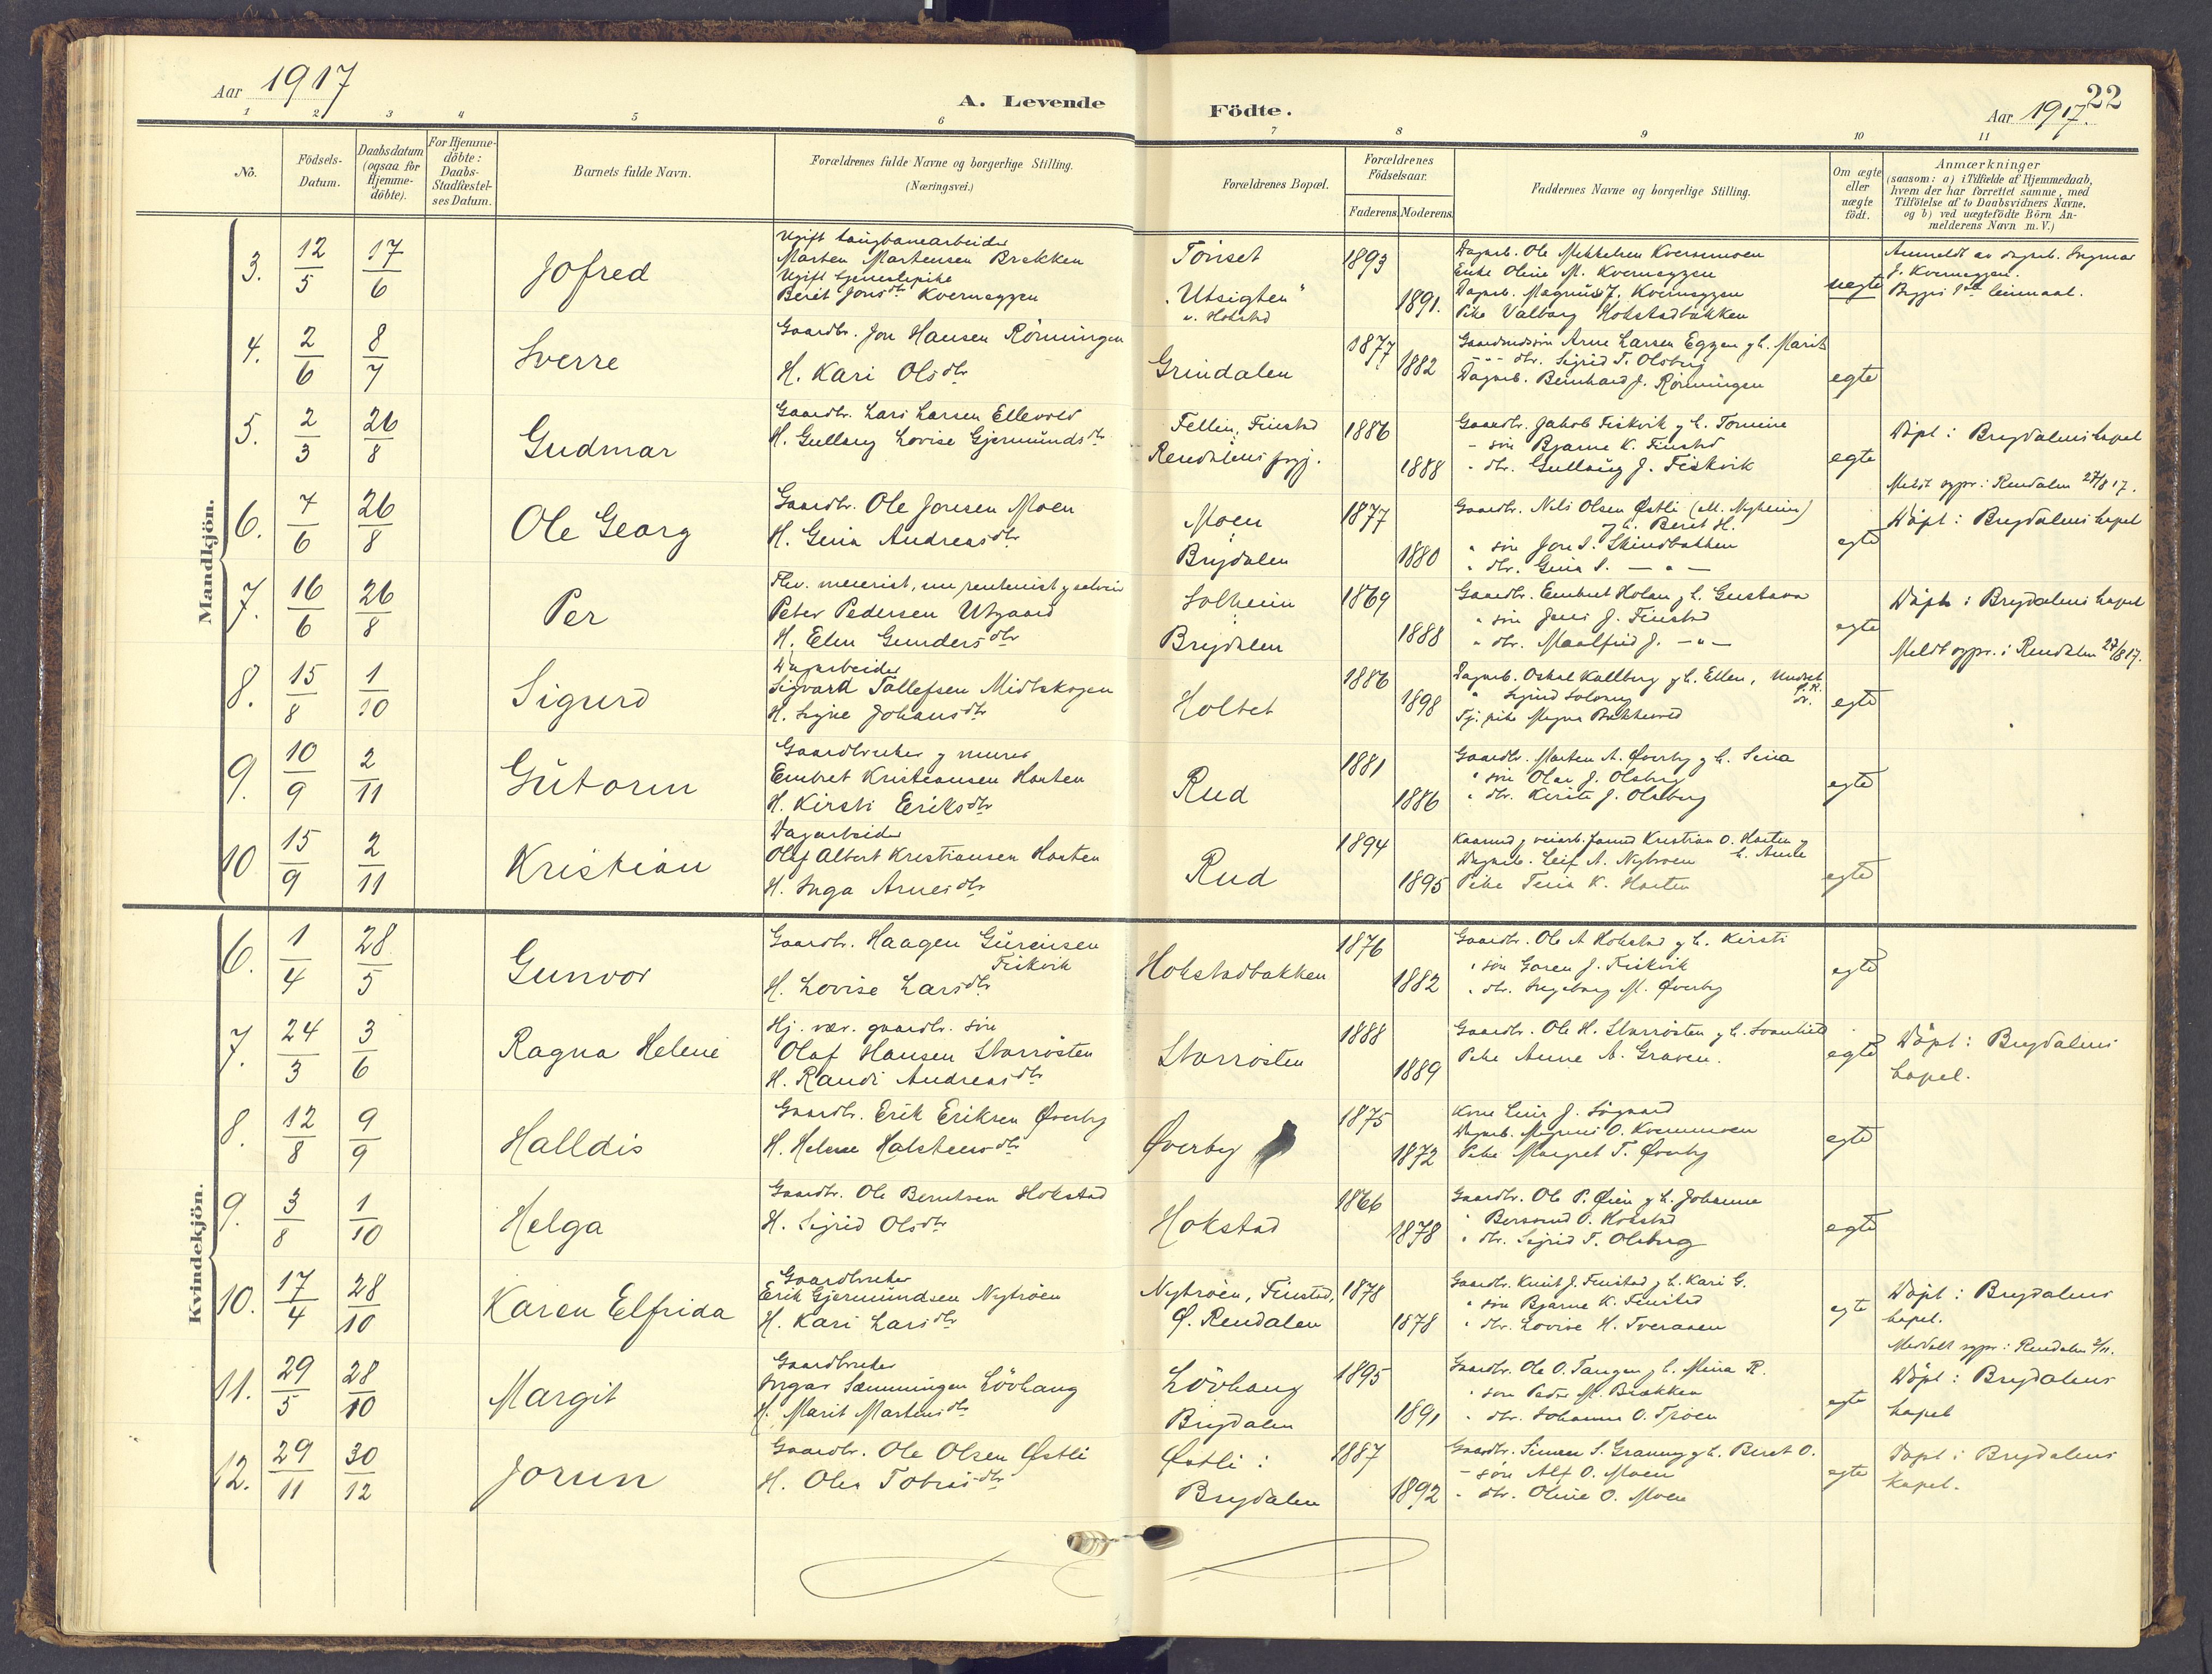 Aar 1917
A. Levende
Födte.
Aar 1917.
22
1
2
3
4
5
6
7
8
9
10
11
No.
Födsels-
Datum.
Daabsdatum
(ogsaa for
Hjemme-
döbte).
For Hjemme-
döbte:
Daabs-
Stadfæstel-
ses Datum.
Barnets fulde Navn.
Forældrenes fulde Navne og borgerlige Stilling.
(Næringsvei.)
Forældrenes Bopæl.
Forældrenes
Födselsaar.
Faderens.
Moderens.
Faddernes Navne og borgerlige Stilling.
Om ægte
eller
uægte
födt.
Anmærkninger
(saasom: a) i Tilfælde af Hjemmedaab,
hvem der har forrettet samme, med
Tilföielse af to Daabsvidners Navne.
og b) ved uægtefödte Börn An-
melderens Navn m. V.)
Mandkjön.
3.
12/5
17/6
Jofred
Ugift
Marten Martensen Brækken
Ugift
Berit Jonsdtr Kvernæggen
Tönset
"Utsigten"
v. Hokstad
1893
1891.
Dagarb. Ole Mikkelsen Kvernmoen
Enke Oline M. Kvernæggen
Dagarb. Magnus J. Kvernæggen
Pike Valborg Hokstadbakken
uegte
Anmeldt av dagarb. Ingmar
J. Kvernæggen.
4.
2/6
8/7
Sverre
Gaardbr. Jon Hansen Rönningen
H. Kari Olsdtr
Grindalen
1877
1882
Arne Larsen Eggen g h. Marit
dtr. Sigrid T. Olsberg
Dagarb. Bernhard J. Rönningen
egte
5.
2/3
26/8
Gudmar
Gaardbr. Lars Larsen Ellevold
H. Gullaug Lovise Gjermundsdtr
Fellin, Finstad
Rendalens prgj.
1886
1888
Gaardbr. Jakob Fiskvik g h. Tomine
- sön Bjarne K. Finstad
" dtr. Gullaug J. Fiskvik
egte
Döpt i Brydalens kapel
Meldt sgpr. i Rendalen 27/8 17.
6.
7/6
26/8
Ole Georg
Gaardbr. Ole Jonsen Moen
H. Gina Andreasdtr
Moen
i
Brydalen
1877
1880
Gaardbr. Nils Olsen Østli
g h. Beret H.
" sön Jon S. Skindbakken
" dtr. Gina S. — " —
egte
Döpt i Brydalens kapel
7.
16/6
26/8
Per
Peter Pedersen Utgaard
H. Elen Gundersdtr
Solheim
i
Brydalen
1869
1888
Gaardbr. Embret Holen g h. Gustava
" sön Jens J. Finstad
" dtr. Maalfrid J. — " —
egte
Döpt i Brydalens kapel
Meldt sgpr. i Rendalen 27/8 17.
8.
15/8
1/10
Sigurd
Dagarbeider
Sigvard Tollefsen Midtskogen
H. Signe Johansdtr
Holtet
1886
1898
Dagarb. Oskar Kallberg g h. Ellen,
" Sigurd
Tj. pike Magna
egte
9.
10/9
2/11
Gutorm
Gaardbruker g murer
Embret Kristiansen Haarten
H. Kirsti Eriksdtr
Rud
1881
1886
Gaardbr. Morten A. Øverby g h. Sina
" sön Olav J. Olsberg
" dtr. Kirsti J. Olsberg
egte
10
15/9
2/11
Kristian
Dagarbeider
Olaf Albert Kristiansen Haarten
H. Inga Arnesdtr
Rud
1894
1895
Kristian O. Haarten g
h. Anne
Dagarb. Leif A. Nybroen
Pike Tina K. Haarten
egte
Kvindekjön.
6.
1/4
28/5
Gunvor
Gaardbr. Haagen
Fiskvik
H. Lovise Larsdtr
Hokstadbakken
1876
1882
Gaardbr. Ole A Hokstad g h. Kirsti
" sön Goren J. Fiskvik
" dtr. Ingeborg M. Øverby
egte
7.
24/3
3/6
Ragna Helene
Hj. vær. gaardbr. sön
Olaf Hansen Storrösten
H. Randi Andreasdtr
Storrösten
1888
1889
Gaardbr. Ole H. Storrösten g h.
Pike Anne A. Graven.
egte
Döpt i Brydalens
kapel.
8.
12/8
9/9
Halldis
Gaardbr. Erik Eriksen Øverby
H. Helene Halstensdtr
Øverby
1875
1872
Kone Lina J. Sögaard
Dagarb. Magnus O. Kvernmoen
Pike Margret T. Øverby
egte
9.
3/8
1/10
Helga
Gaardbr. Ole Berntsen Hokstad
H. Sigrid Olsdtr
Hokstad
1866
1878
Gaardbr. Ole P. Øien g h. Johanne
" Bersvend O. Hokstad
" dtr. Sigrid T. Olsberg
egte
10.
17/4
28/10
Karen Elfrida
Gaardbruker
Erik Gjermundsen Nybröen
H. Kari Larsdtr
Nybröen, Finstad,
Ø. Rendalen
1878
1878
Gaardbr. Knut J. Finstad g h. Kari G.
" sön Bjarne K. Finstad
" dtr. Lovise H. Tveraaen
egte
Döpt i Brydalens
kapel.
sgpr. i Rendalen
11.
29/5
28/10
Margit
Gaardbruker
Ingar Sæmmingen Lövhaug
H. Marit Martensdtr
Lövhaug
Brydalen
1895
1891
Gaardbr. Ole O. Tangen g h. Mina R.
" sön Peder M. Brækken
" dtr. Johanne O. Troen
egte
Döpt i Brydalens
kapel
12.
29/11
30/12
Jorun
Gaardbr. Ole Olsen Østli
H. Olea Tobiasdtr
Østli i
Brydalen
1887
1892
Gaardbr. Simen S. g h. Beret O.
- sön Alf O. Moen
" dtr. Oline O. Moen
egte
Döpt i Brydalens
kapel.